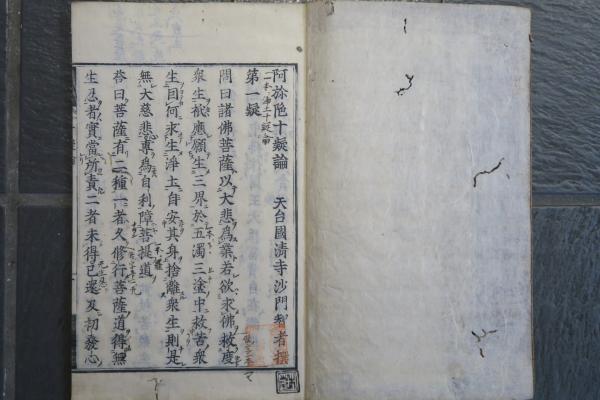 阿弥陁十疑論　天台國清寺沙門智者撰
第一疑
問曰諸佛菩薩以大悲為業若欲求佛救度
衆生祇應願生三界於五濁三塗中救苦衆
生因何求生淨土自安其身捨離衆生則是
無大慈悲專為自利障菩提道
荅曰菩薩有二種一者久修行菩薩道得無
生忍者實當所責二者未得已還及初發心